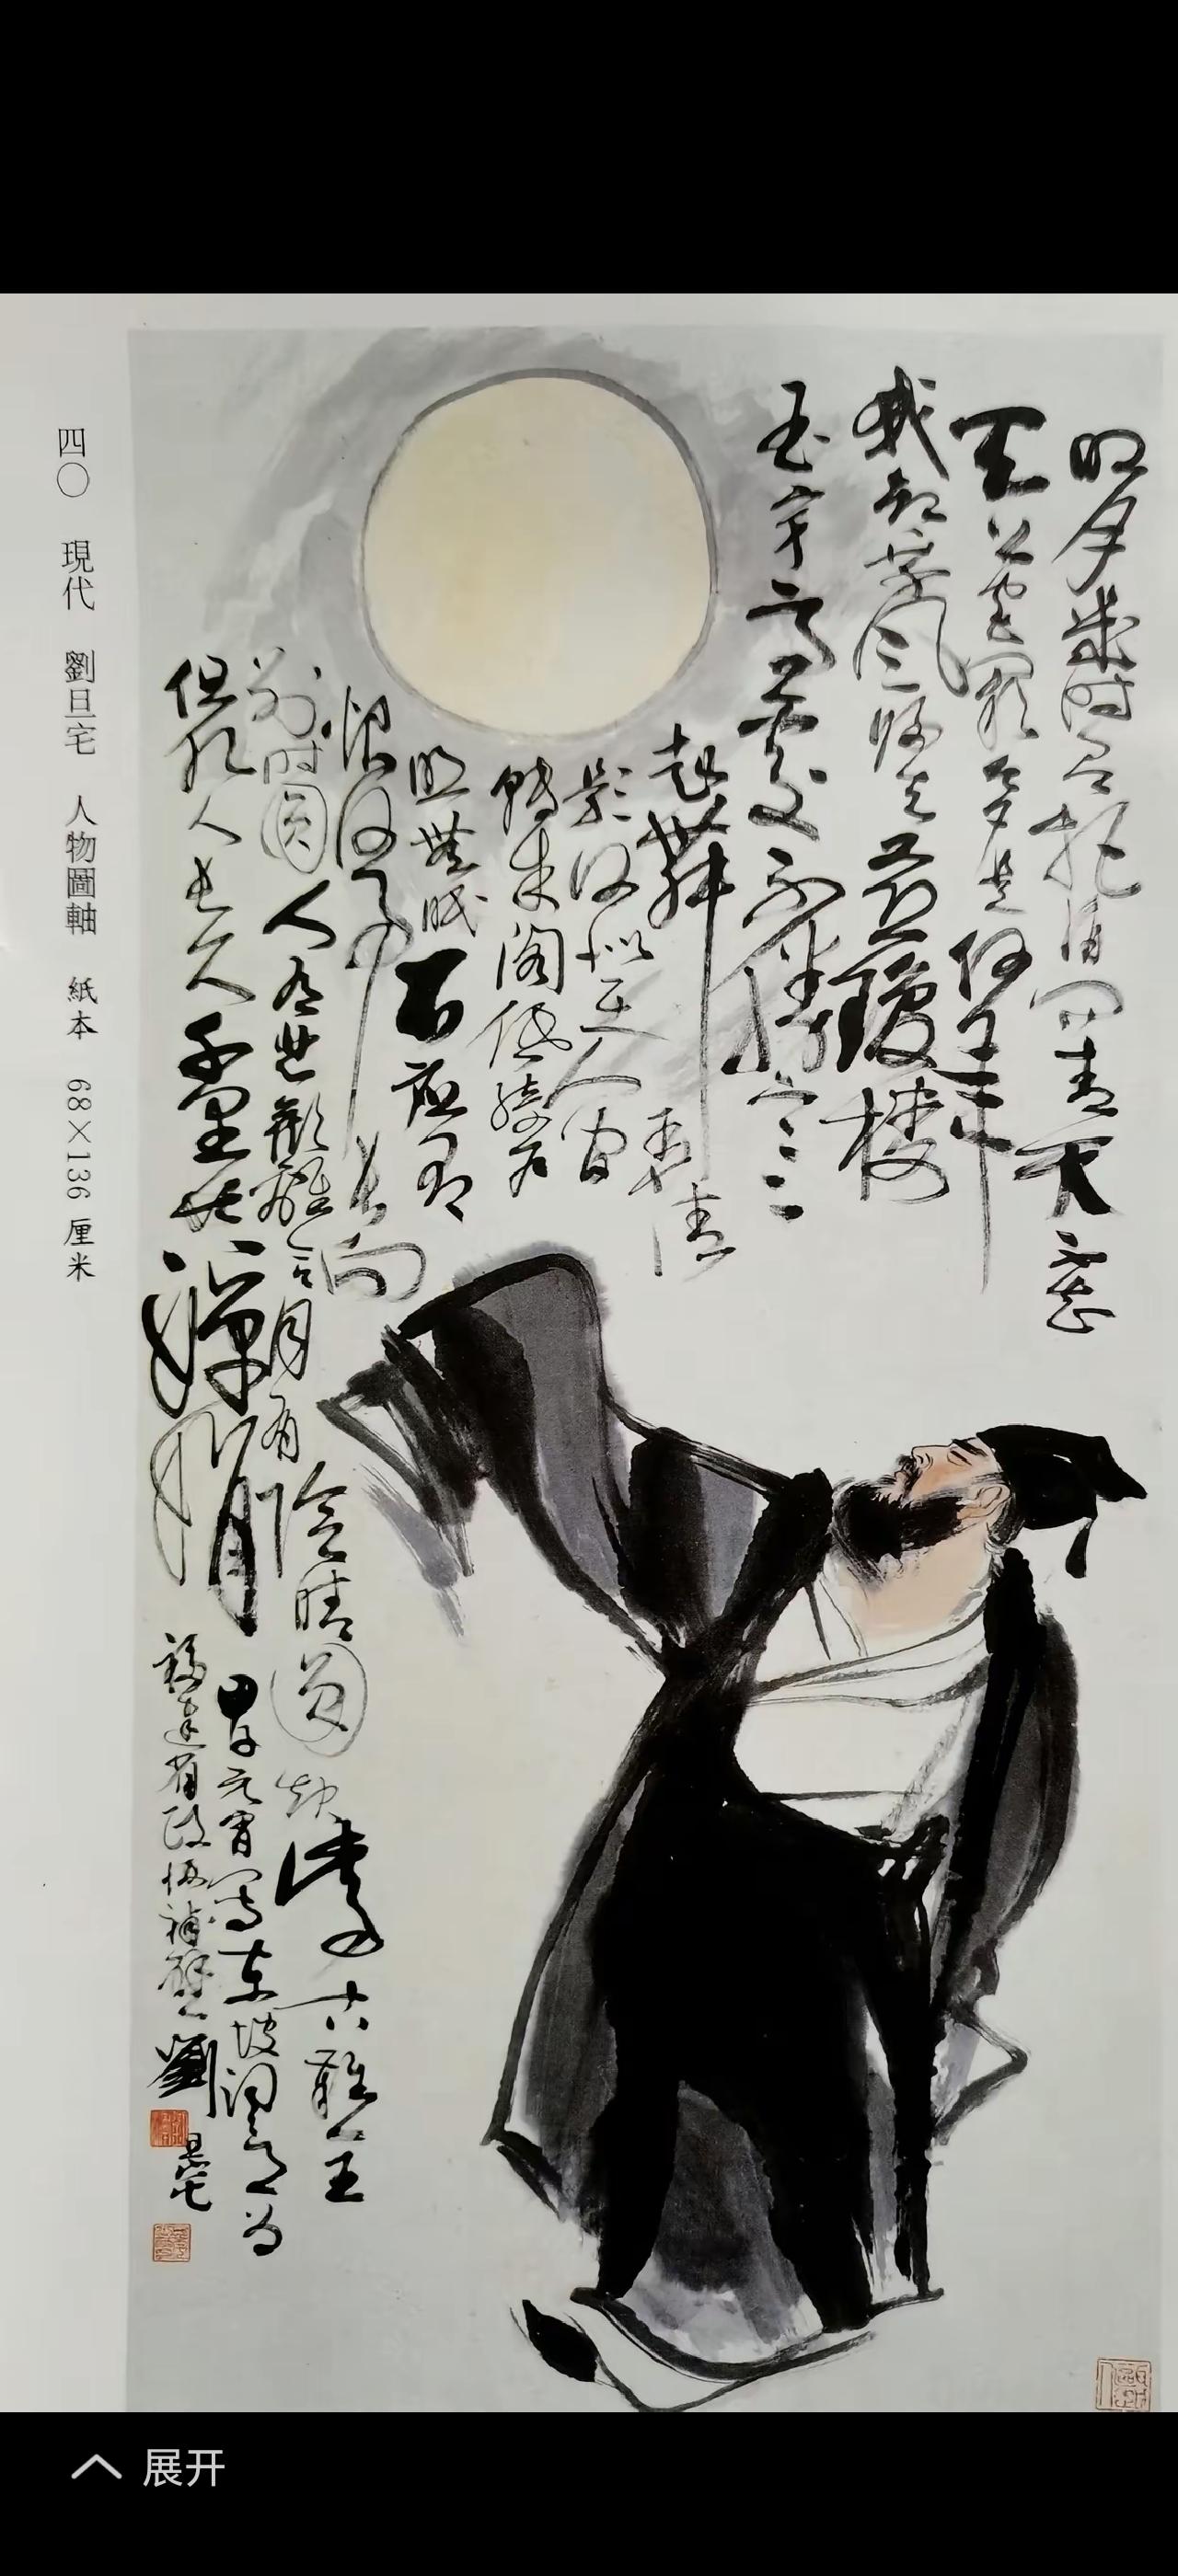 明月幾时有把酒问青天不知
天上宫闕今夕是何年
我欲乘风归去又恐瓊楼
玉宇高處不勝寒
起舞弄清
影何似在人间
轉朱阁低綺户
照無眠不應有
恨何事长向
别时圆人有悲歡離合月有陰晴圆缺此事古難全
但願人长久千里共嬋娟
甲子元宵写東坡词意为
福建省政协補壁劉旦宅
四〇 現代 劉旦宅 人物圖軸 紙本 68×136 厘米
展开